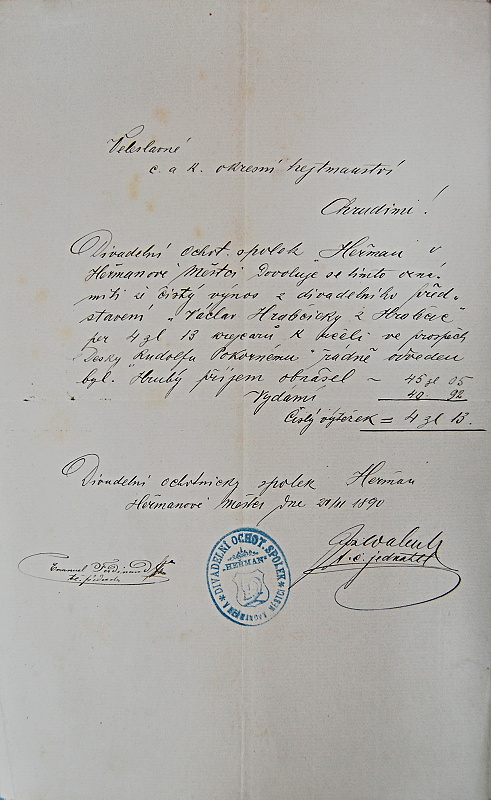 Veleslavné
c. a k. okresní hejtmanství
Chrudimi!
Divadelní ochot. spolek "Heřman" v
Heřmanově Městci dovoluje se tímto ozná-
miti že čistý výnos z divadelního před-
stavení "Václav Hrobčický z Hrobčic"
per 4 zl 13 krejcarů k účeli ve prospěch
"Desky Rudolfu Pokornému" řádně odveden
byl. Hrubý příjem obnášel – 45 zl 05
Vydání 40. 92
Čistý výtěžek = 4 zl 13.
Divadelní ochotnický spolek Heřman
Heřmanově Městci dne 21/11 1890
t. č. jednatel
Ferdinand
DIVADELNÍ OCHOT. SPOLEK
"HEŘMAN"
V HEŘMANOVĚ MĚSTCI